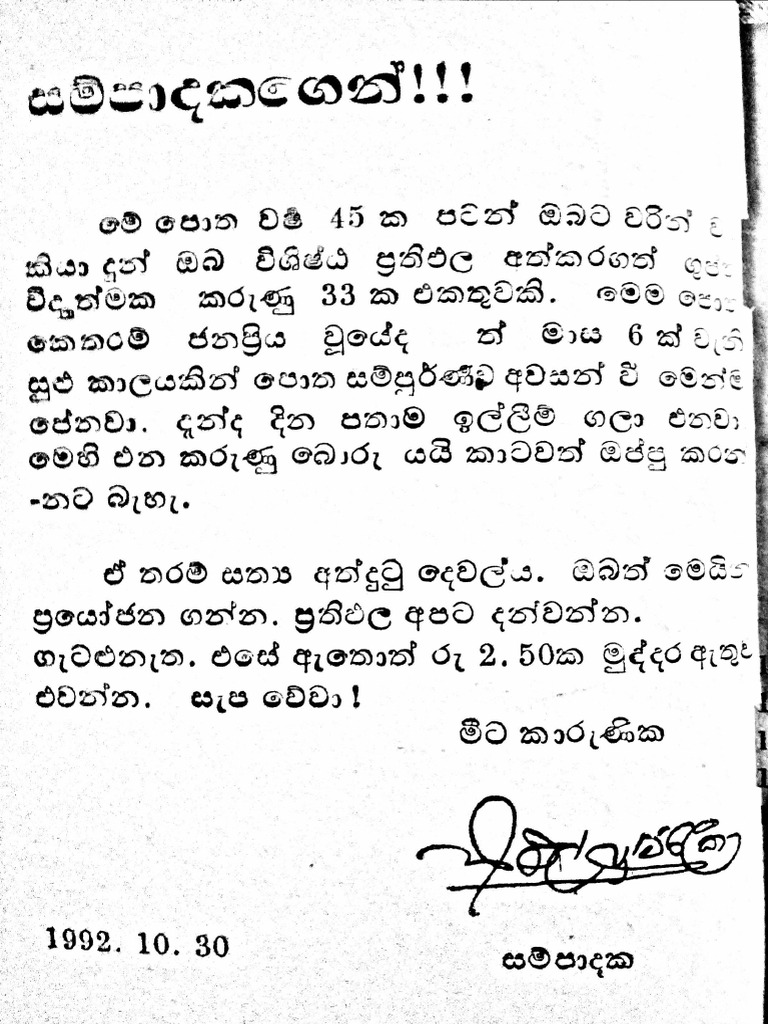 සම්පාදකගෙන්!!!
මේ පොත වර්ෂ 45 ක පටන් ඔබට වරින්
කියා දුන් ඔබ විශිෂ්ඨ ප්‍රතිඵල අත්කරගත්
විද්‍යාත්මක කරුණු 33 ක එකතුවකි. මෙම
කෙතරම් ජනප්‍රිය වූයේද ත් මාස 6 ක්
සුළු කාලයකින් පොත සම්පූර්ණව අවසන් වී
පේනවා. දැන්ද දින පතාම ඉල්ලීම් ගලා එනවා
මෙහි එන කරුණු බොරු යයි කාටවත් ඔප්පු කරන්
-නට බැහැ.
ඒ තරම් සත්‍ය අත්දුටු දෙවල්ය. ඔබත්
ප්‍රයෝජන ගන්න. ප්‍රතිඵල අපට දන්වන්න.
ගැටළුනැත. එසේ ඇතොත් රු 2.50ක මුද්දර
එවන්න. සැප වේවා!
මීට කාරුණික
1992. 10. 30
සම්පාදක